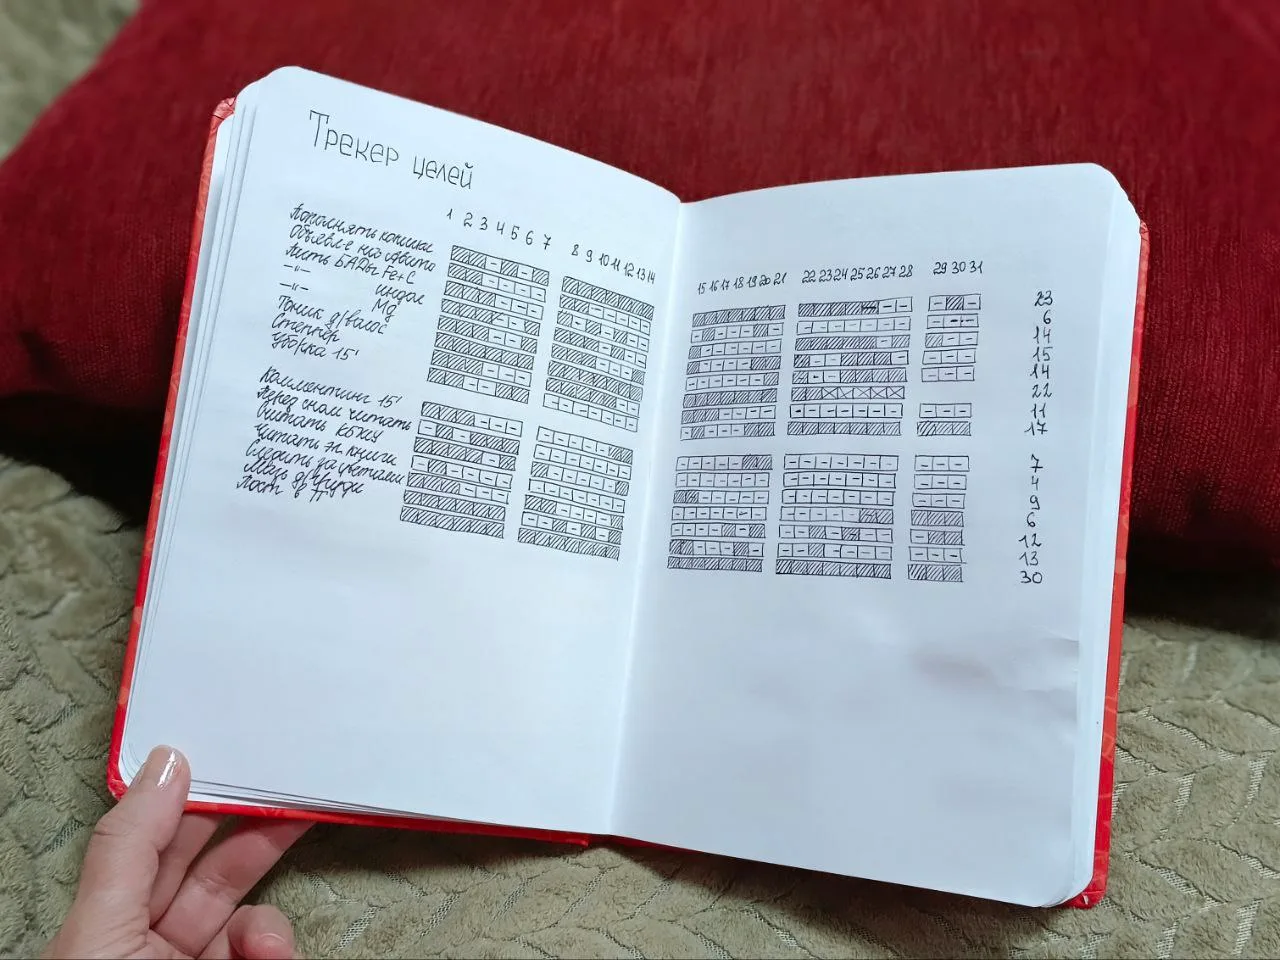 Трекер целей
1 2 3 4 5 6 7 8 9 10 11 12 13 14
15 16 17 18 19 20 21 22 23 24 25 26 27 28 29 30 31
Пополнять копилки 23
Объявле на Авито 6
Пить БАДы Fe+C 14
—"— индол 15
—"— Mg 14
Тоник д/волос 22
Степпер 11
Уборка 15' 17
Комментинг 15' 7
Перед сном читать 4
Считать КБЖУ 9
Читать эл. книги 6
Следить за цветами 12
Мазь д/груди 13
Пост в 30